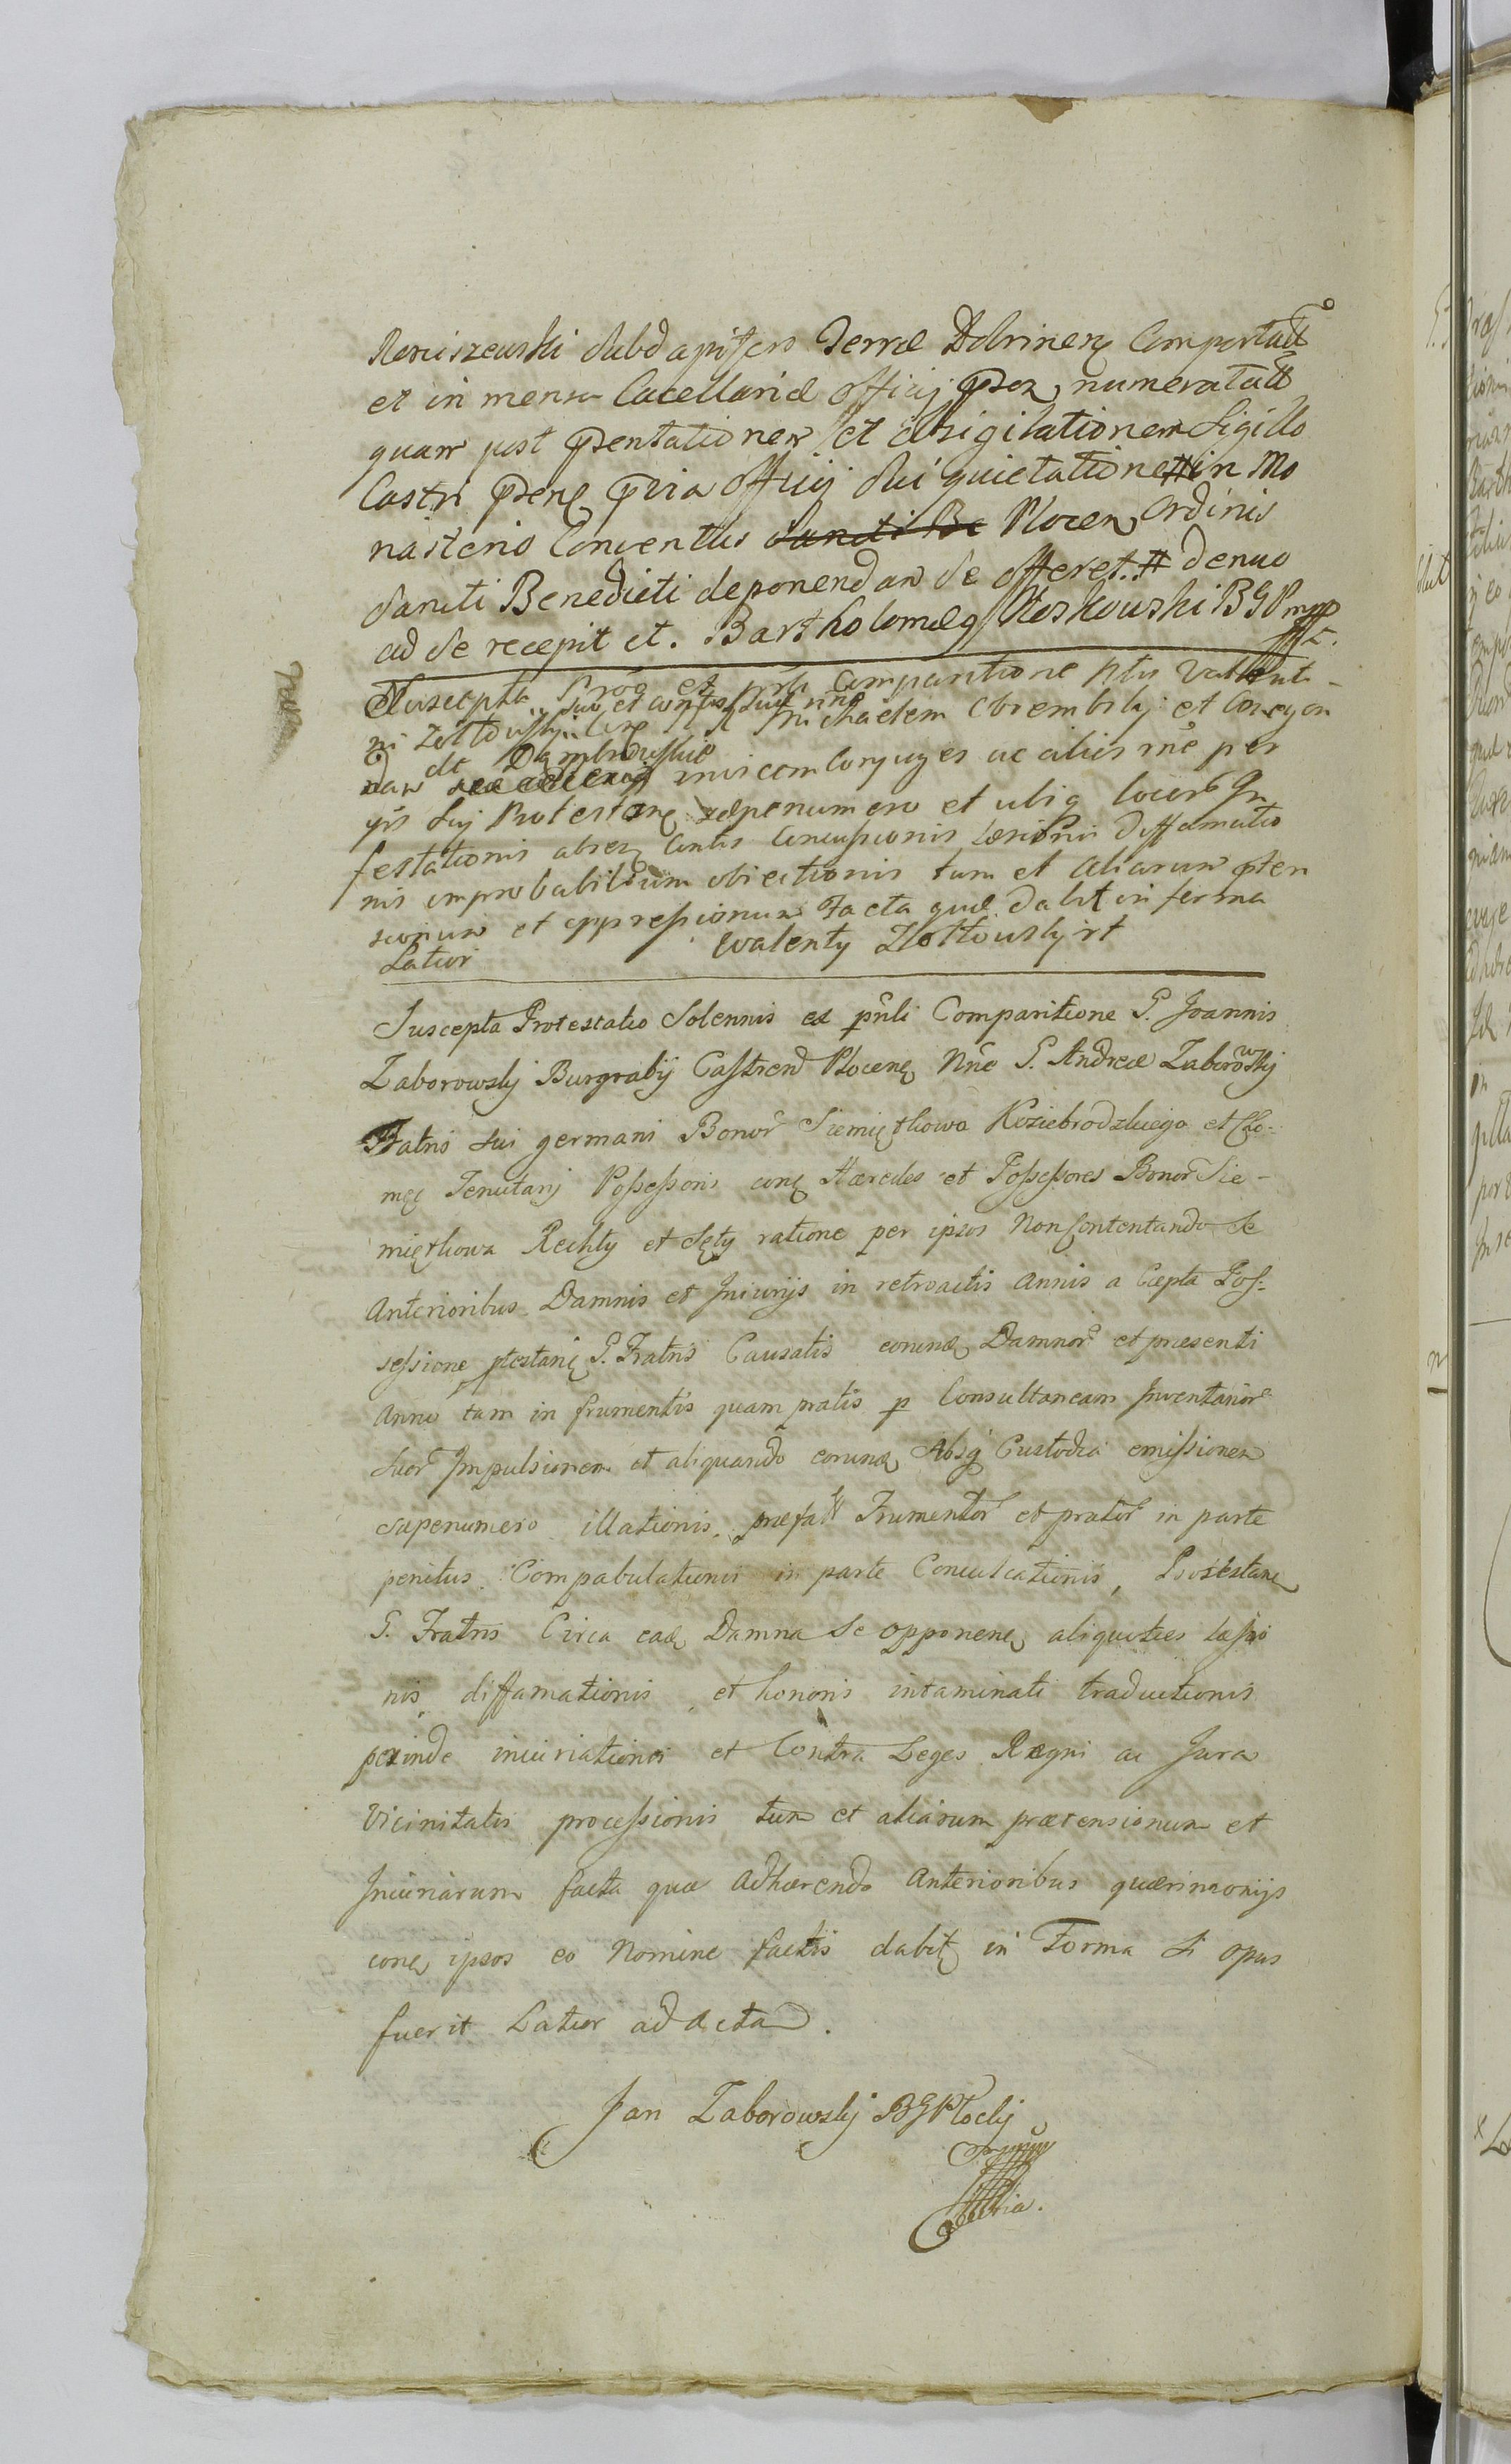 Rościszewski Subdapiferi Terræ Dobrinen Comportatã
et in mensa Cacellariæ officij pñtis numeratam
quam post pñsentationem et obsigilationem Sigillo
Castri pñsen prævia officij sui quietatione # in Mo
nasterio Conventus Sancti Be Plocen Ordinis
Sancti Benedicti deponendam se offeret. # denuo
ad se recepit et. Bartholomæq Koskowski BGP mpp
Suscepta Proõ ex pñli Comparitione Valenti-
ni Zołtowskij suo et consortis suæ nñe Michaelem Obrembskij et
de Dambrowskie
invicem Conjuges ac alios rñe per
Protestanę sæpenumero et ubiq locor
festationis absq Concussionis læsionis diffamatio
nis improbabilium obiectionis tum et aliarum pten
sionum et oppressionum Facta quæ dabit in forma
Latior Walenty Zołtowskj rt
Suscepta Protestatio Solennis ex pñli Comparitione G. Joannis
Zaborowskj Burgrabij Castren Plocenę Nñe G. Andreæ Zaborowskj
Fratris sui germani Bonor Siemiętkowa Koziebrodzkiego et Sło-
męę Tenutarij Possessoris conę Hæredes et Possessores Bonor Sie-
miętkowa Rechty et Sęty ratione per ipsos Non Contentando Se
Anterioribus Damnis et Iniurijs in retroactis Annis a Cæpta Pos-
sessione ptestanę G. Fratris Causatis eorundę Damnor et præsenti
Anno tam in frumentis quam pratis p Consultaneam Inventarior
Suor Impulsionem et aliquando eorundę Absq Custodia emissionem
sæpenumero illationis, præfat Frumentor et prator in parte
penitus Compabulationis in parte Conculcationis, Protestanę
G. Fratris Circa eadę Damna Se opponenę aliquoties læsio
nis diffamationis, et honoris intaminati traductionis
proinde iniuriationis et Contra Leges Regni ac Jura
Vicinitatis processionis tum et aliarum prætensionum et
Iniuriarum facta quæ Adhærendo Anterioribus quærimonijs
conę ipsos eo Nomine factis dabitę in Forma Si opus
fuerit Latior ad Acta.
Jan Zaborowskj BGPłockj